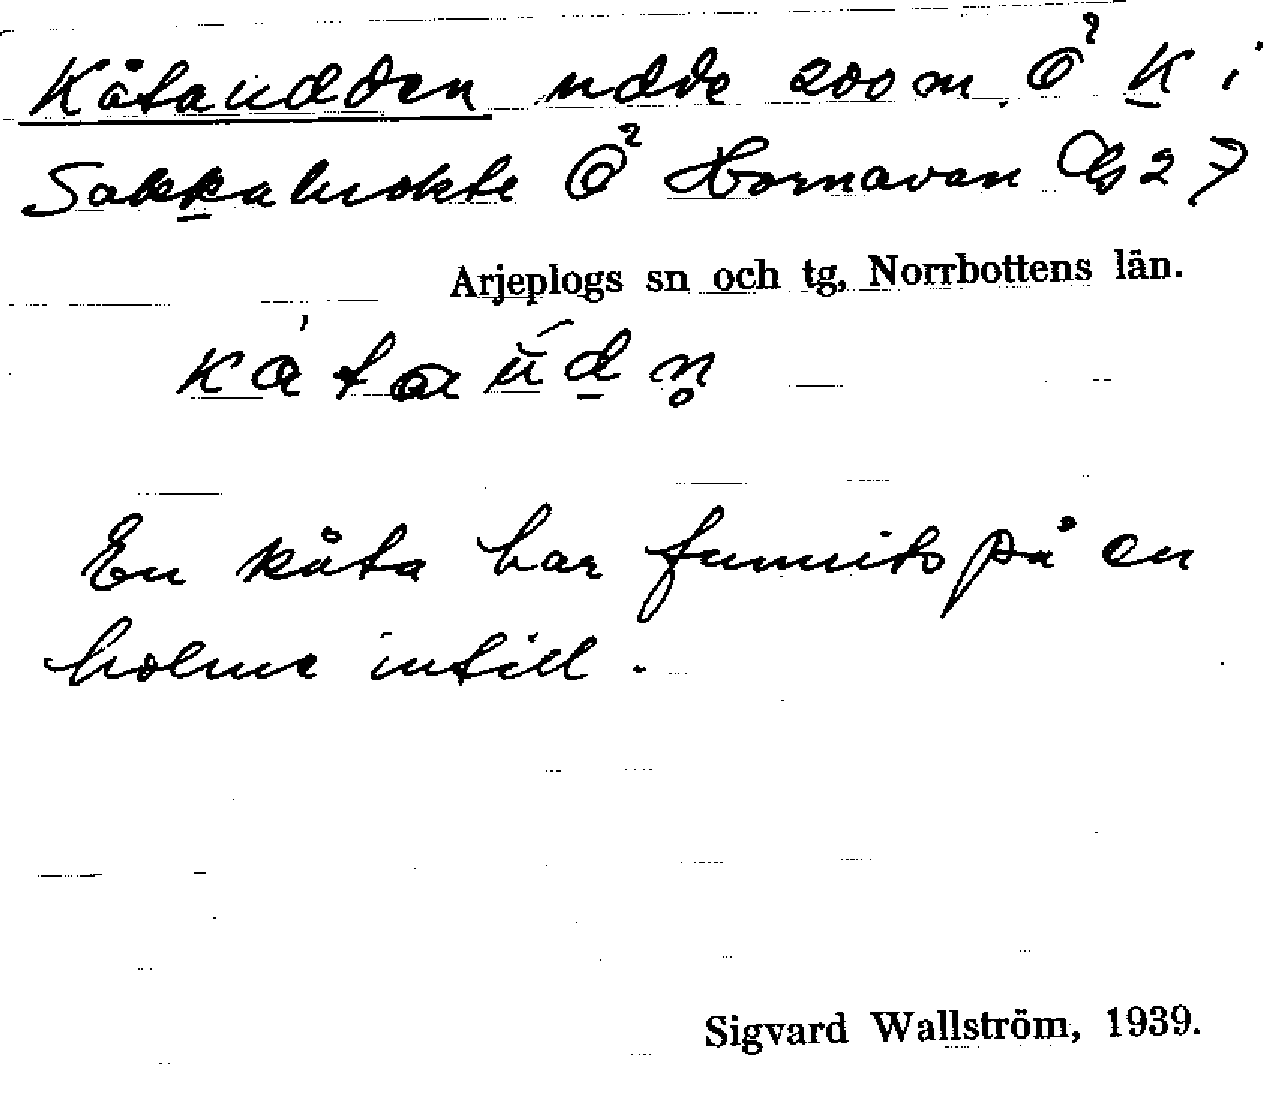 Kåtaudden udde 200 m. Ö K i
Ö Hornavan 27
Arjeplogs sn och tg, Norrbottens län.
En kåta har funnits på en
holme intill.
Sigvard Wallström, 1939.